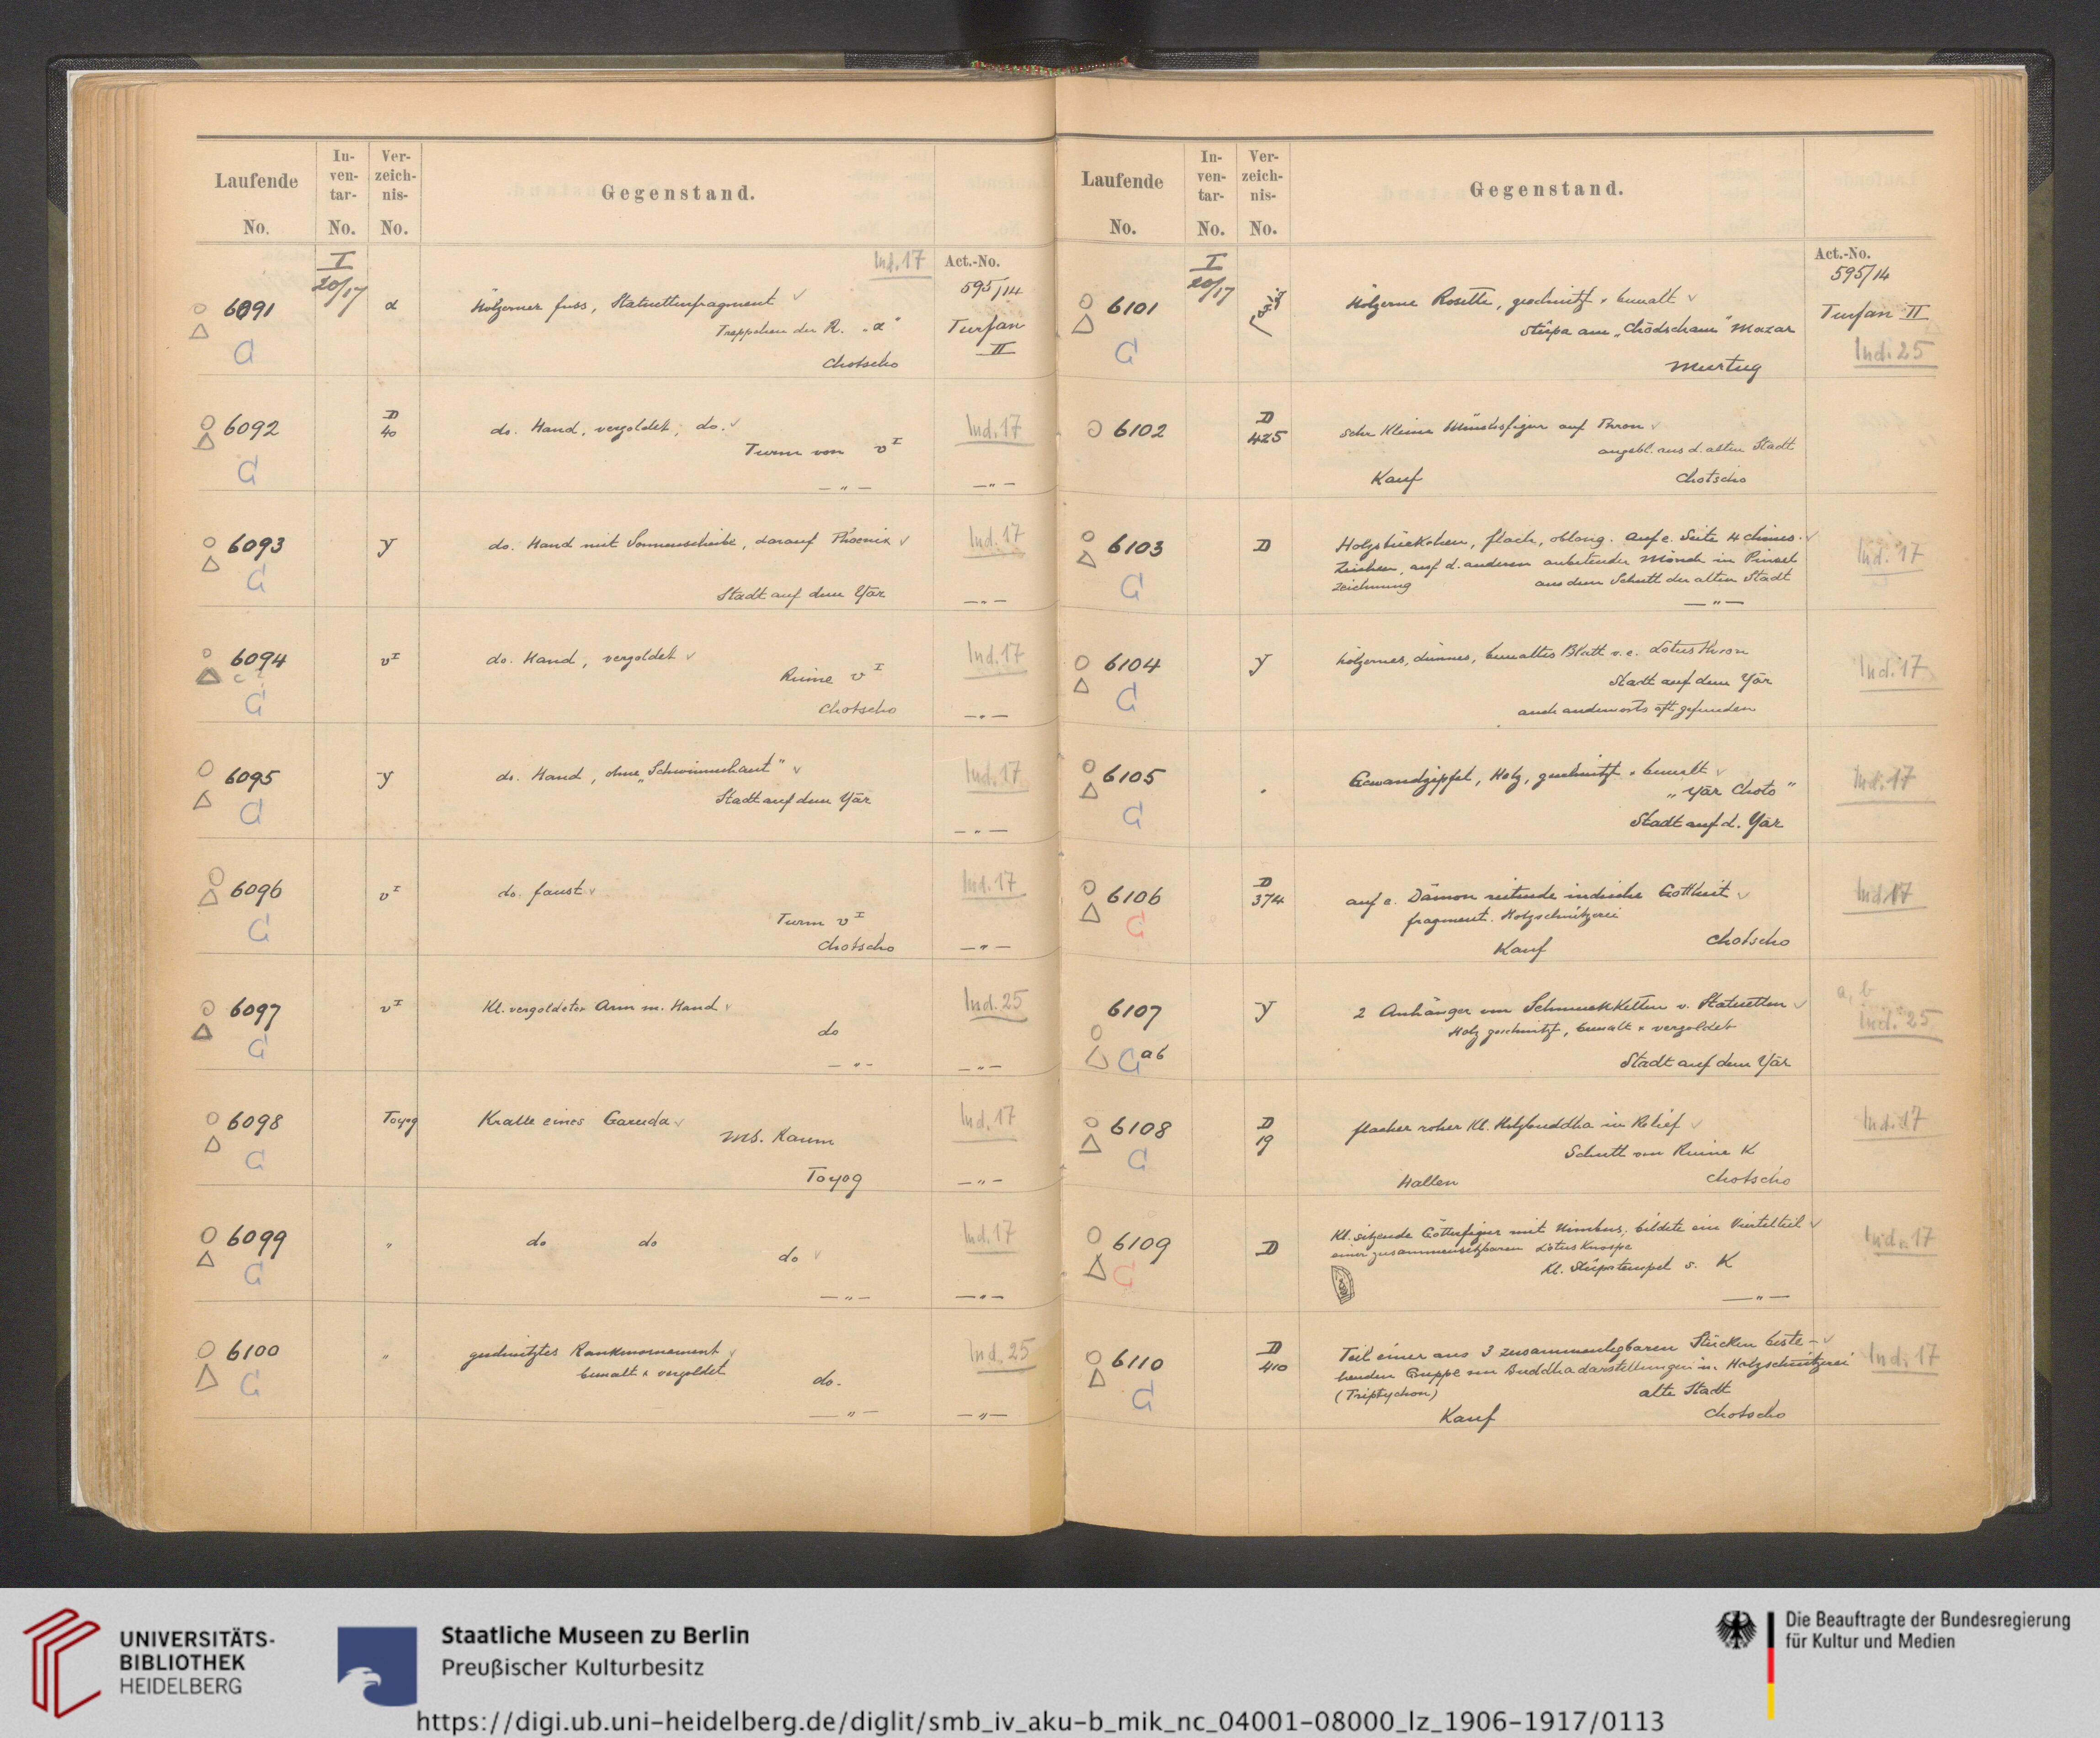 Laufende No.
In-ven-tar-No.
Ver-zeich-nis-No.
Gegenstand.
Ind. 17
Act.-No.
595/14
Turfan II
I 20/17
6091
α
Hölzerner fuss, Statuettenfragment
Treppchen der R. „α"
Chotscho
6092
D 40
do. Hand, vergoldet, do.
Turm von v I
— " —
Ind. 17
— " —
6093
y
do. Hand mit Sonnenscheibe, darauf Phoenix
Stadt auf dem Yār
Ind. 17
— " —
6094
v I
do. Hand, vergoldet
Ruine v I
Chotscho
Ind. 17
— " —
6095
y
do. Hand, ohne „Schwimmhaut"
Stadt auf dem Yār
Ind. 17
— " —
6096
v I
do. faust
Turm v I
Chotscho
Ind. 17
— " —
6097
v I
Kl. vergoldeter Arm m. Hand
do
— " —
Ind. 25
— " —
6098
Toyog
Kralle eines Garuda
MS. Raum
Toyog
Ind. 17
— " —
6099
"
do do
do
— " —
Ind. 17
— " —
6100
"
geschnitztes Rankenornament
bemalt & vergoldet
do.
— " —
Ind. 25
— " —
Laufende No.
In-ven-tar-No.
Ver-zeich-nis-No.
Gegenstand.
Act.-No.
595/14
Turfan II
Ind. 25
I 20/17
6101
Hölzerne Rosette, geschnitzt & bemalt
Stūpa am „Chōdscham" Mazar
Murtug
6102
D 425
Sehr kleine Mönchsfigur auf Thron
angebl. aus d. alten Stadt
Kauf Chotscho
6103
D
Holzstückchen, flach, oblong. Auf e. Seite 4 chines.
Zeichen, auf d. anderen anbetender Mönch in Pinsel-
zeichnung aus dem Schutt der alten Stadt
— " —
Ind. 17
6104
y
hölzernes, dünnes, bemaltes Blatt v. e. Lotus thron
Stadt auf dem Yār
auch anderworts oft gefunden
Ind. 17
6105
Gewandzipfel, Holz, geschnitzt & bemalt
„Yār Choto"
Stadt auf d. Yār
Ind. 17
6106
D 374
auf e. Dämon reitende indische Gottheit
fragment. Holzschnitzerei
Kauf Chotscho
Ind 17
6107
a b
y
2 Anhänger von Schmuckketten v. Statuetten
Holz geschnitzt, bemalt & vergoldet
Stadt auf dem Yār
a, b
Ind. 25
6108
D 19
flacher roher Kl. Holzbuddha in Relief
Schutt von Ruine K
Hallen Chotscho
Ind. 17
6109
D
Kl. sitzende Götterfigur mit Nimbus; bildete ein Viertelteil
einer zusammensetzbaren Lotus Knospe
Kl. Stūpatempel s. K
— " —
Ind. 17
6110
D 410
Teil einer aus 3 zusammenlegbaren Stücken beste-
henden Gruppe von Buddhadarstellungen in Holzschnitzerei
(Triptychon) alte Stadt
Kauf Chotscho
Ind. 17
UNIVERSITÄTS-
BIBLIOTHEK
HEIDELBERG
Staatliche Museen zu Berlin
Preußischer Kulturbesitz
Die Beauftragte der Bundesregierung
für Kultur und Medien
https://digi.ub.uni-heidelberg.de/diglit/smb_iv_aku-b_mik_nc_04001-08000_lz_1906-1917/0113